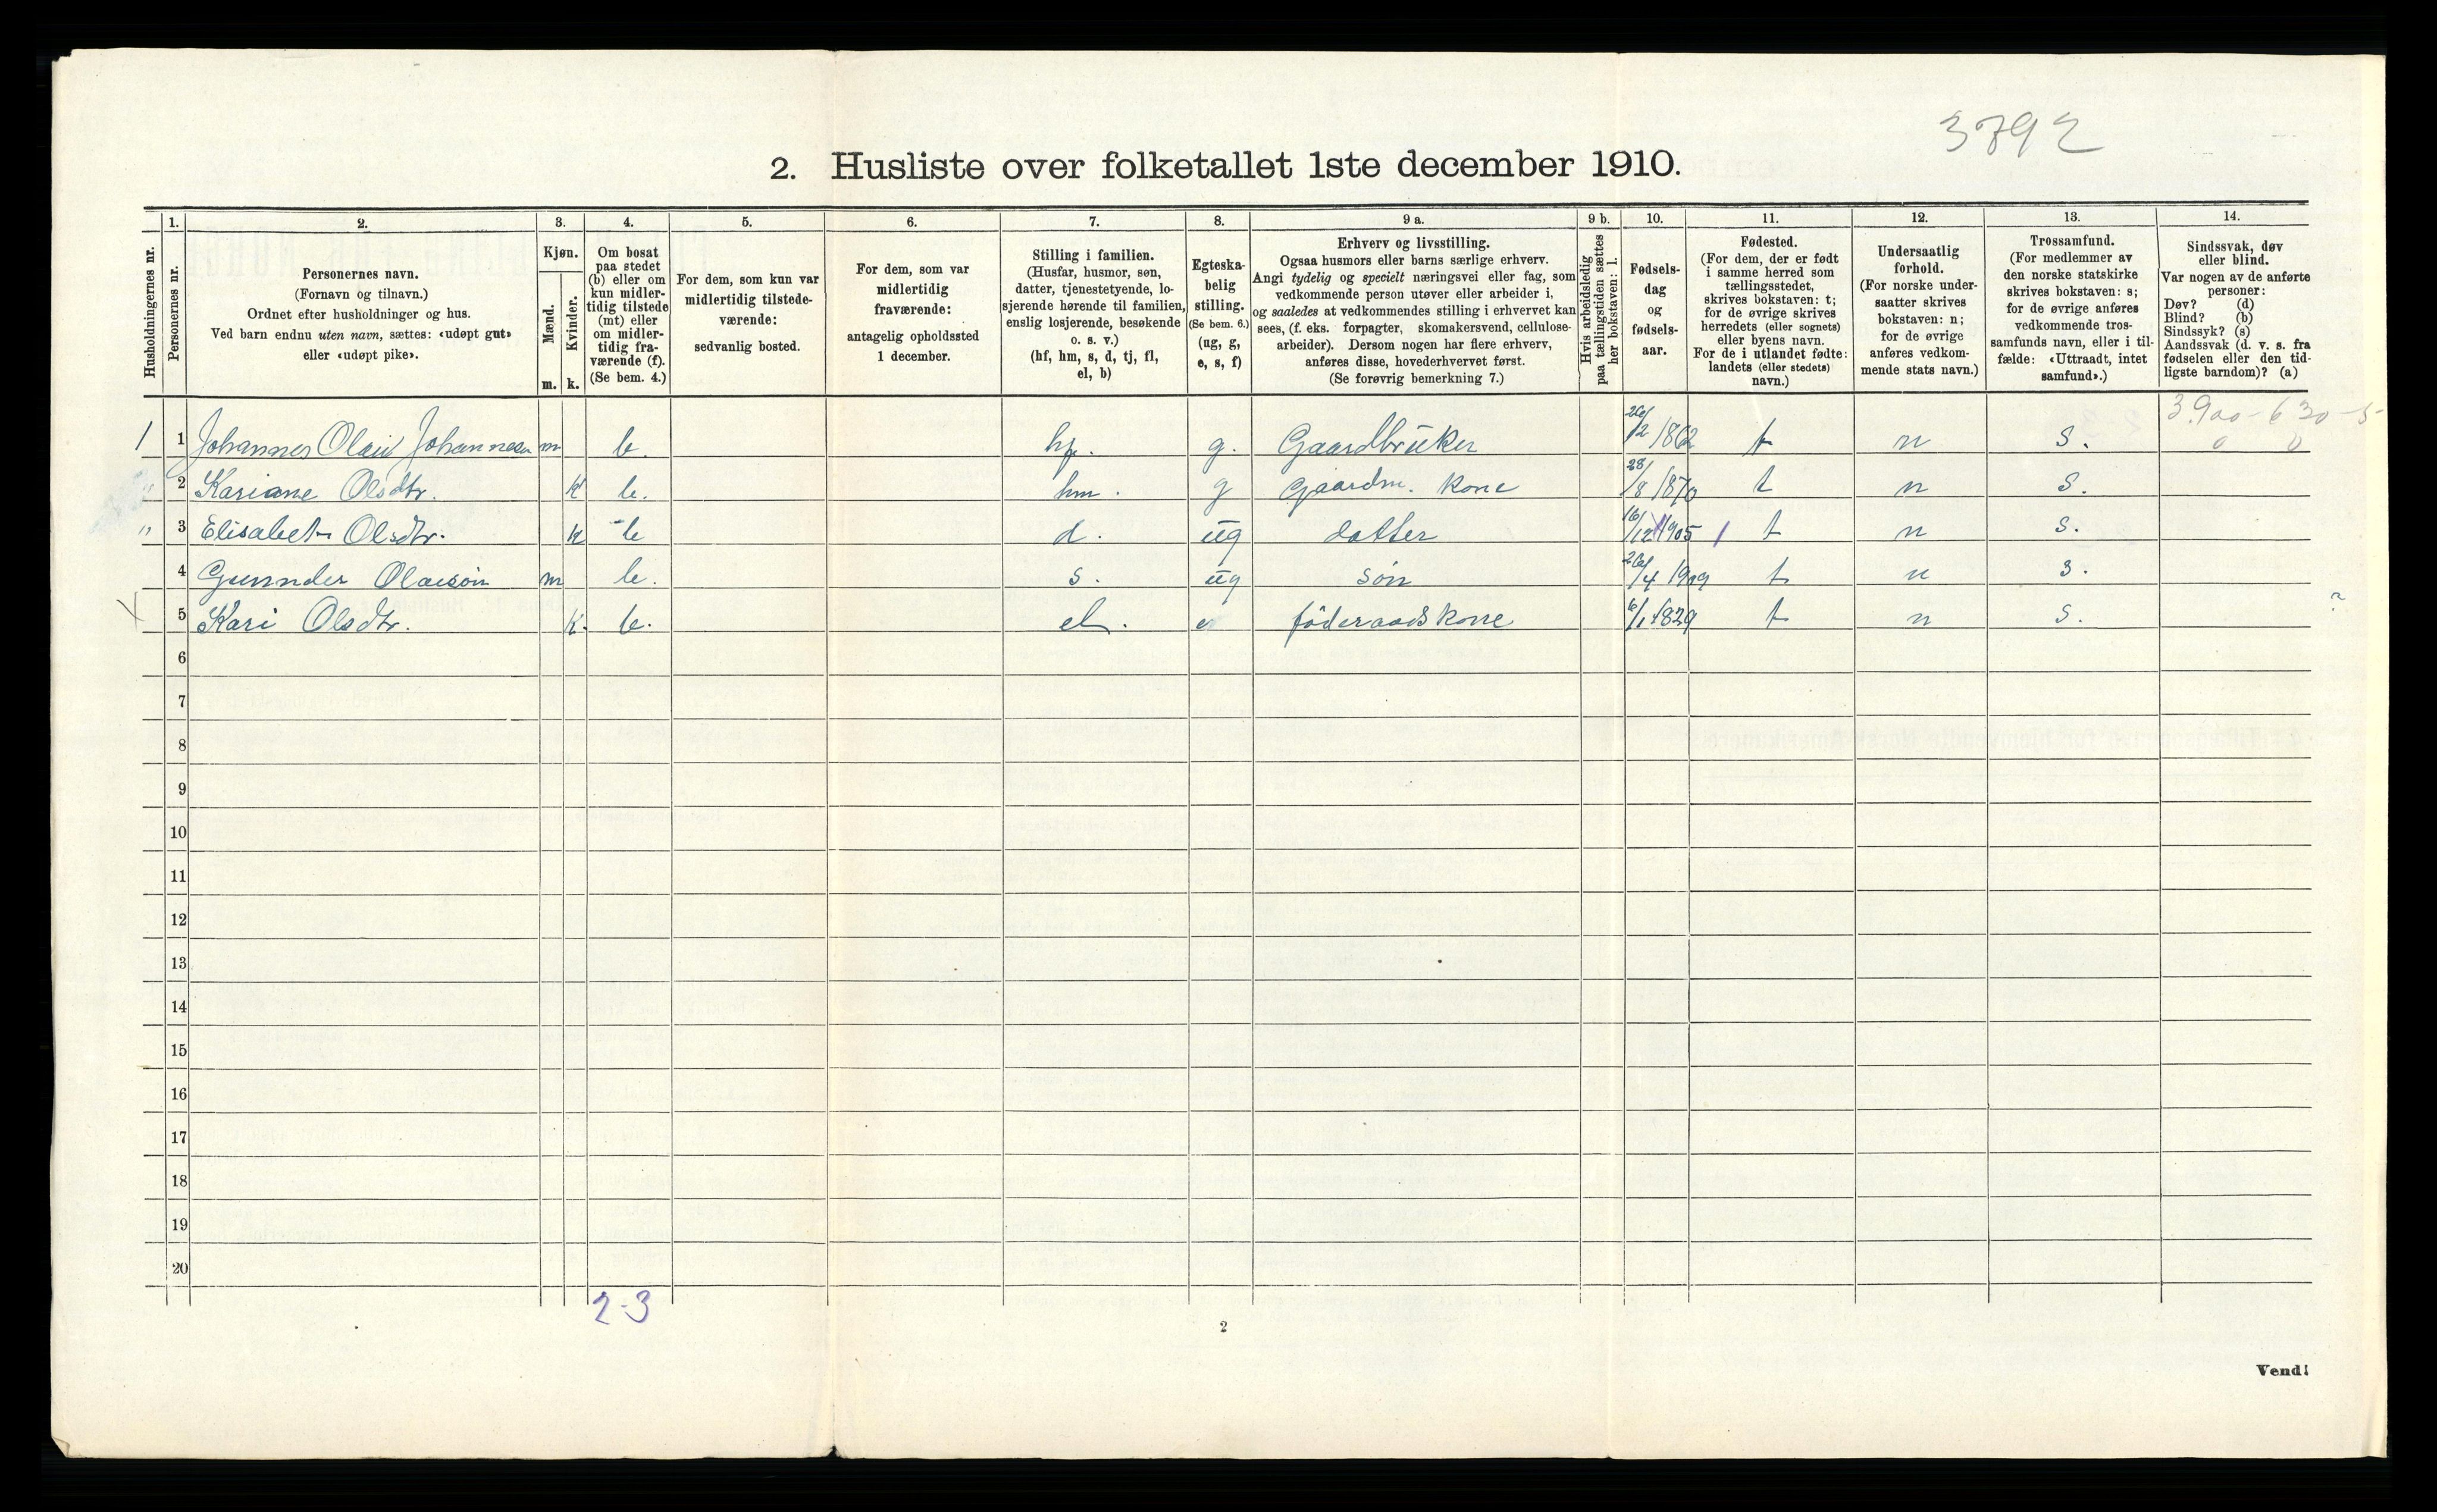 3792
2. Husliste over folketallet 1ste december 1910.
Husholdningernes nr.
1.
Personernes nr.
2.
Personernes navn.
(Fornavn og tilnavn.)
Ordnet efter husholdninger og hus.
Ved barn endnu uten navn, sættes: «udøpt gut»
eller «udøpt pike».
3.
Kjøn.
Mænd.
Kvinder.
m. k.
4.
Om bosat
paa stedet
(b) eller om
kun midler-
tidig tilstede
(mt) eller
om midler-
tidig fra-
værende (f).
(Se bem. 4.)
5.
For dem, som kun var
midlertidig tilstede-
værende:
sedvanlig bosted.
6.
For dem, som var
midlertidig
fraværende:
antagelig opholdssted
1 december.
7.
Stilling i familien.
(Husfar, husmor, søn,
datter, tjenestetyende, lo-
sjerende hørende til familien,
enslig losjerende, besøkende
o. s. v.)
(hf, hm, s, d, tj, fl,
el, b)
8.
Egteska-
belig
stilling.
(Se bem. 6.)
(ug, g,
e, s, f)
9 a.
Erhverv og livsstilling.
Ogsaa husmors eller barns særlige erhverv.
Angi tydelig og specielt næringsvei eller fag, som
vedkommende person utøver eller arbeider i,
og saaledes at vedkommendes stilling i erhvervet kan
sees, (f. eks. forpagter, skomakersvend, cellulose-
arbeider). Dersom nogen har flere erhverv,
anføres disse, hovederhvervet først.
(Se forøvrig bemerkning 7.)
9 b.
Hvis arbeidsledig
paa tællingstiden sættes
her bokstaven: l.
10.
Fødsels-
dag
og
fødsels-
aar.
11.
Fødested.
(For dem, der er født
i samme herred som
tællingsstedet,
skrives bokstaven: t;
for de øvrige skrives
herredets (eller sognets)
eller byens navn.
For de i utlandet fødte:
landets (eller stedets)
navn.)
12.
Undersaatlig
forhold.
(For norske under-
saatter skrives
bokstaven: n;
for de øvrige
anføres vedkom-
mende stats navn.)
13.
Trossamfund.
(For medlemmer av
den norske statskirke
skrives bokstaven: s;
for de øvrige anføres
vedkommende tros-
samfunds navn, eller i til-
fælde: «Uttraadt, intet
samfund».)
14.
Sindssvak, døv
eller blind.
Var nogen av de anførte
personer:
Døv? (d)
Blind? (b)
Sindssyk? (s)
Aandssvak (d. v. s. fra
fødselen eller den tid-
ligste barndom)? (a)
3.900 - 630 - 5-
0 0
1 1 Johannes Olai Johannesen m b. hf. g. Gaardbruker 26/2 1862 t n s.
" 2 Kariane Olsdtr. k b. hm. g Gaardm. kone 28/8 1870 t n s.
" 3 Elisabet Olsdtr. k b d. ug datter 16/12 1905 t n s.
4 Gunnder Olaisøn m b. s. ug søn 26/4 1909 t n s.
X 5 Kari Olsdtr. k. b. el. e føderaadskone 6/1 1829 t n s. ?
6
7
8
9
10
11
12
13
14
15
16
17
18
19
20
2-3
2
Vend!